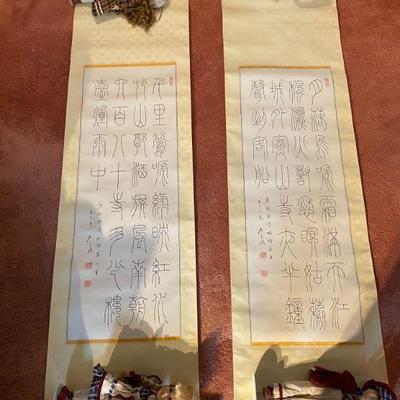 月落烏啼霜滿天江
楓漁火對愁眠姑蘇
城外寒山寺夜半鐘
聲到客船
千里鶯啼綠映紅水
村山郭酒旗風南朝
四百八十寺多少樓
臺煙雨中